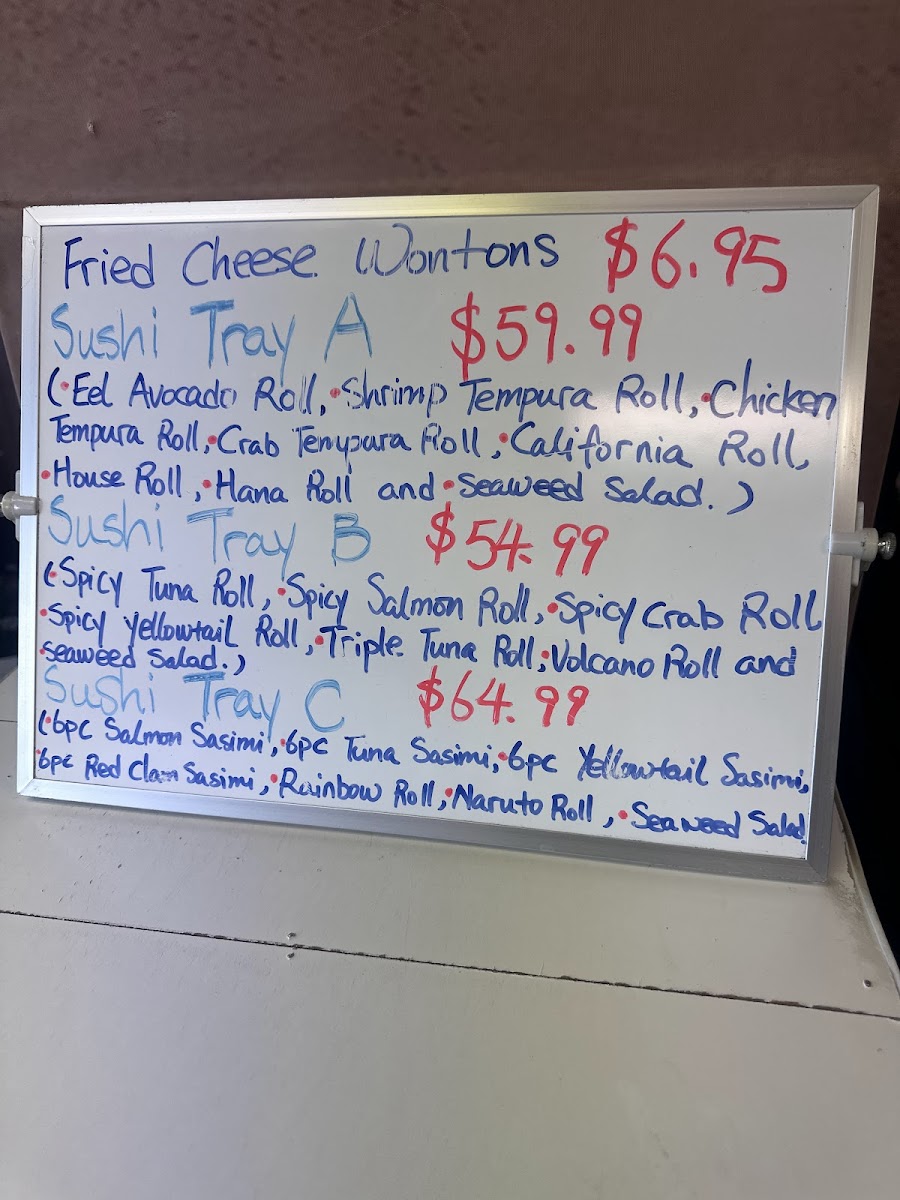 Fried Cheese Wontons $6.95
Sushi Tray A $59.99
(•Eel Avocado Roll, •Shrimp Tempura Roll, •Chicken
Tempura Roll, •Crab Tempura Roll, •California Roll,
•House Roll, •Hana Roll and •Seaweed Salad.)
Sushi Tray B $54.99
(•Spicy Tuna Roll, •Spicy Salmon Roll, •Spicy Crab Roll
•Spicy Yellowtail Roll, •Triple Tuna Roll, •Volcano Roll and
•seaweed Salad.)
Sushi Tray C $64.99
(•6pc Salmon Sasimi, •6pc Tuna Sasimi, •6pc Yellowtail Sasimi,
•6pc Red Clam Sasimi, •Rainbow Roll, •Naruto Roll, •Seaweed Salad)